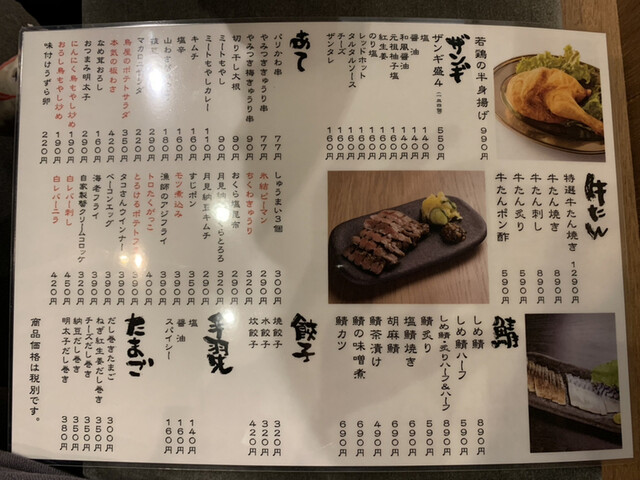 若鶏の半身揚げ 990円
ザンギ盛4 550円
ザンギ
塩 140円
醤油 140円
和風醤油
元祖柚子塩 160円
紅生姜 160円
のり塩 160円
レッドホット
タルタルソース
チーズ
ザンタレ
あて
パリかわ串 77円
やみつききゅうり串 77円
やみつき梅きゅうり串 90円
切り干し大根 90円
ミートもやし 90円
ミートもやしカレー 110円
キムチ 190円
塩辛 190円
マカロニサラダ
鳥屋のポテトサラダ 350円
本気の塩わさ 420円
なめ茸おろし
おつまみ明太子
にんにく鳥もやし炒め 190円
おろし鳥もやし炒め 190円
味付けうずら卵 220円
牛たん
特選牛たん焼き 1290円
牛たん焼き 890円
牛たん刺し 890円
牛たん炙り 590円
牛たんポン酢 590円
しゅうまい3個 300円
氷結ピーマン 200円
ちくわきゅうり 290円
おくら塩昆布
月見なめことろろ 320円
月見納豆キムチ 290円
すじポン 350円
モツ煮込み 390円
漁師のアジフライ 350円
トロたくがっこ 400円
とろけるポテトフライ 390円
タコさんウインナー
ベーコンエッグ 390円
海老フライ
自家製蟹クリームコロッケ 420円
白レバー刺し 450円
白レバーニラ 420円
鯖
しめ鯖 890円
しめ鯖ハーフ 500円
しめ鯖・炙りハーフ&ハーフ 890円
鯖炙り 590円
塩鯖焼き 690円
胡麻鯖 690円
鯖茶漬け 490円
鯖の味噌煮 690円
鯖カツ 690円
餃子
焼餃子 320円
水餃子 320円
炊餃子 420円
手羽先
塩 140円
醤油 160円
スパイシー 160円
たまご
だし巻きたまご 300円
ねぎ紅生姜だし巻き 350円
チーズだし巻き 350円
納豆だし巻き 350円
明太子だし巻き 380円
商品価格は税別です。